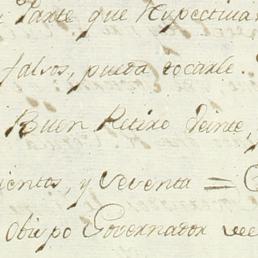 Parte que Respectiva
falsos, pueda tocarle.
Buen Retiro Veinte,
cientos, y Noventa =
Obispo Governador